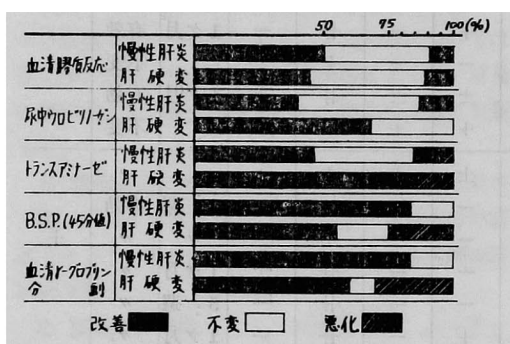 50 75 100(%)
血清膠質反応 慢性肝炎
肝硬変
尿中ウロビリノーゲン 慢性肝炎
肝硬変
トランスアミナーゼ 慢性肝炎
肝硬変
B.S.P.(45分値) 慢性肝炎
肝硬変
血清γ-グロブリン 慢性肝炎
分劃 肝硬変
改善 不変 悪化